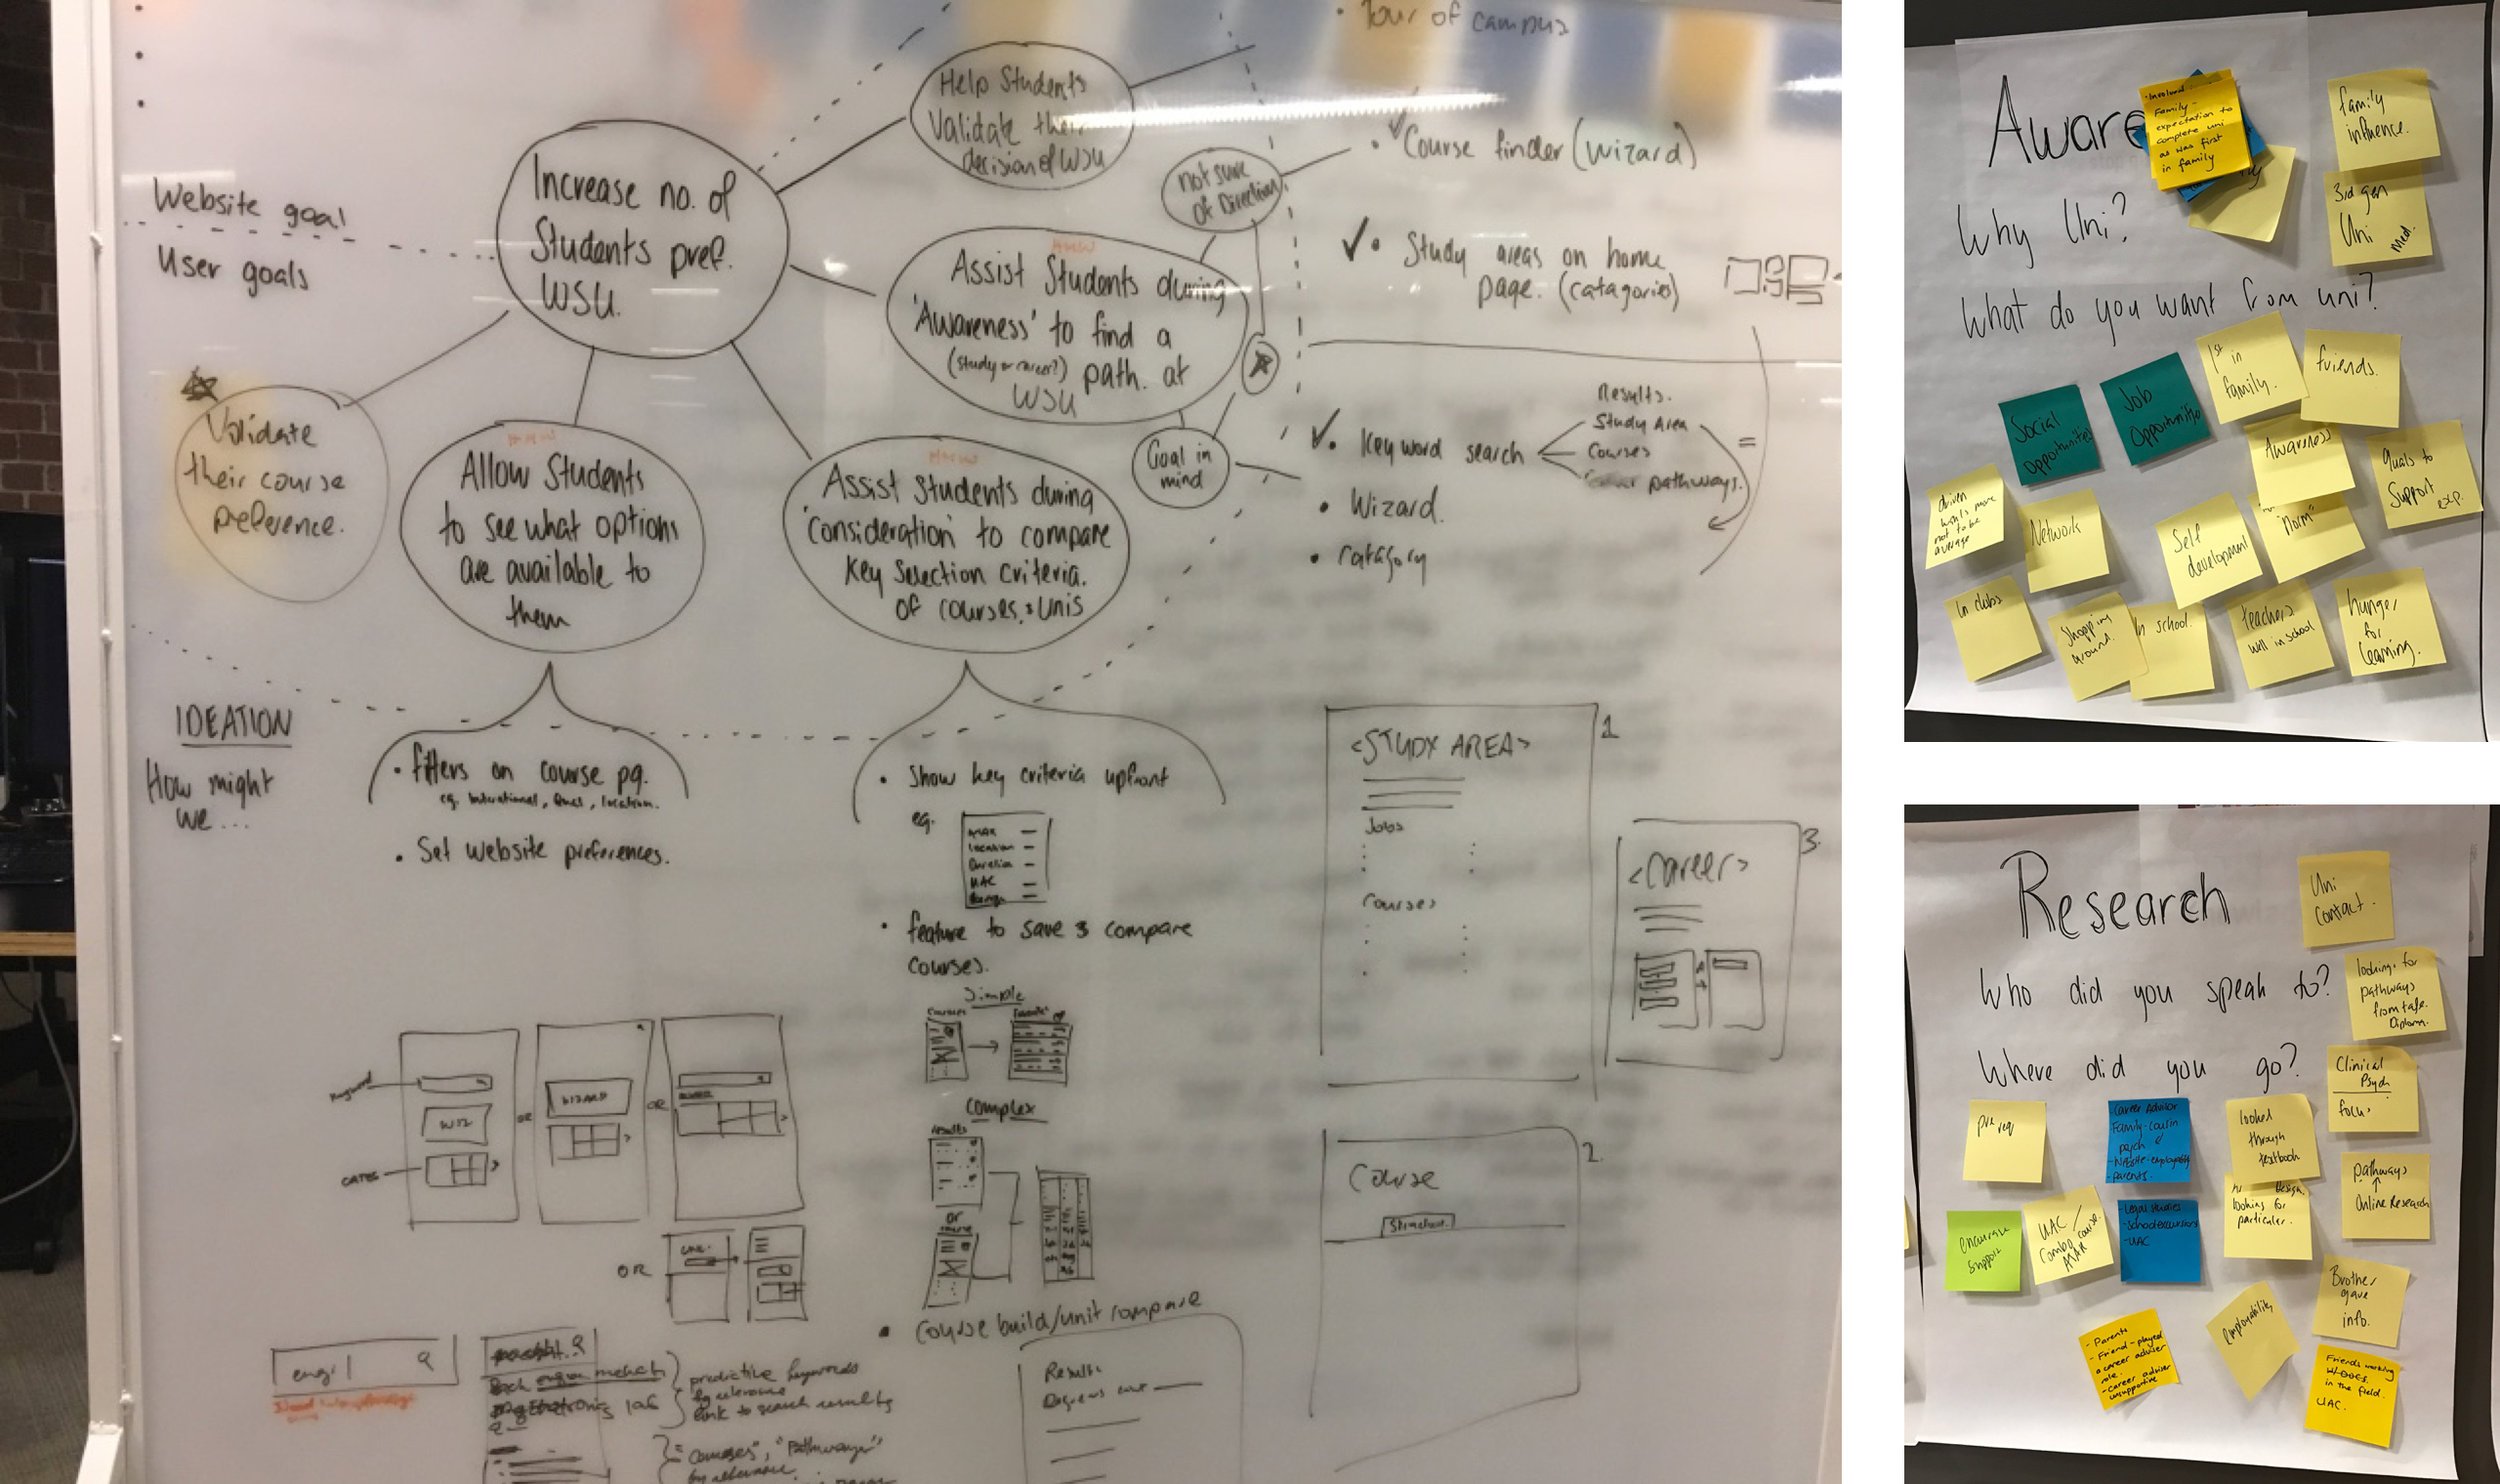 Tour of campus
Help Students
Validate their
decision of WSU
Website goal
User goals
Increase no. of
Students pref.
WSU.
not sure
of Direction
• Course finder (wizard)
• Study areas on home
page. (catagories)
HMW
Assist Students during
'Awareness' to find a
(study or career?) path. at
WSU
Validate
their course
preference.
HMW
Allow Students
to see what options
are available to
them
HMW
Assist Students during
'consideration' to compare
Key Selection criteria.
of courses & unis
Goal in
mind
• Key word search
Results.
Study Area
Courses
pathways.
=
• Wizard.
• catagory
IDEATION
How might
we...
• filters on course pg.
eg. International, location.
• Set website preferences.
• Show key criteria upfront
eg.
location
Duration
UAC
• feature to save & compare
courses.
Simple
Courses
Complex
results
or
• Course build/unit compare
Results
<STUDY AREA>
Jobs
Courses
1.
<Career>
3.
Course
Structure
2.
Keyword
WIZ
CATES
OR
WIZARD
OR
OR
engi
predictive keywords
by relevance
link to search results
= "Courses", "Pathways"
by relevance
Aware
Involved:
Family -
expectation to
complete uni
as was first
in family
family
influence.
Why Uni?
3rd gen
Uni
med.
What do you want from uni?
Social
Opportunities
Job
Opportunities
1st in
family.
friends.
Awareness
Quals to
Support
exp.
driven
wants more
not to be
average
Network
Self
development
"norm"
In clubs
Shopping
around.
In school.
teachers
well in school
hunger
for
learning.
Research
Uni
Contact.
Who did you speak to?
looking for
pathways
from tafe.
Diploma.
Where did you go?
Clinical
Psych
focus
pre req
- Career Advisor
- Family-cousin
psych
- parents.
looked
through
textbook
pathways
↑
Online Research
encourage
support
UAC /
Combo course
ATAR
- Legal studies
- School excursion
- UAC
design.
looking for
particular.
Brother
gave
info.
- Parents
- Friend - played
a career adviser
role.
- Career adviser
unsupportive
employability
Friends working
in the field.
UAC.